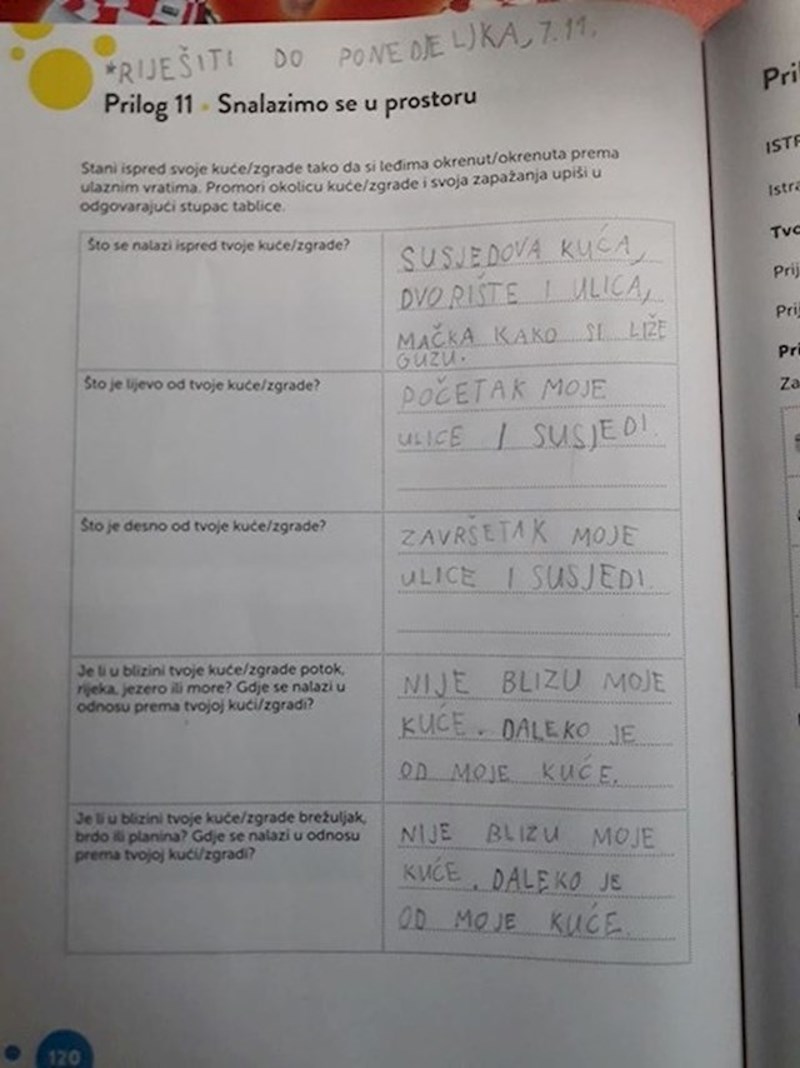 *RIJEŠITI DO PONEDJELJKA, 7.11.
Prilog 11 • Snalazimo se u prostoru
Stani ispred svoje kuće/zgrade tako da si leđima okrenut/okrenuta prema
ulaznim vratima. Promori okolicu kuće/zgrade i svoja zapažanja upiši u
odgovarajući stupac tablice.
Što se nalazi ispred tvoje kuće/zgrade?
SUSJEDOVA KUĆA,
DVORIŠTE I ULICA,
MAČKA KAKO SI LIŽE
GUZU.
Što je lijevo od tvoje kuće/zgrade?
POČETAK MOJE
ULICE I SUSJEDI.
Što je desno od tvoje kuće/zgrade?
ZAVRŠETAK MOJE
ULICE I SUSJEDI.
Je li u blizini tvoje kuće/zgrade potok,
rijeka, jezero ili more? Gdje se nalazi u
odnosu prema tvojoj kući/zgradi?
NIJE BLIZU MOJE
KUĆE. DALEKO JE
OD MOJE KUĆE.
Je li u blizini tvoje kuće/zgrade brežuljak,
brdo ili planina? Gdje se nalazi u odnosu
prema tvojoj kući/zgradi?
NIJE BLIZU MOJE
KUĆE. DALEKO JE
OD MOJE KUĆE.
120
Pri
ISTR
Istra
Tvo
Prij
Prij
Pri
Za